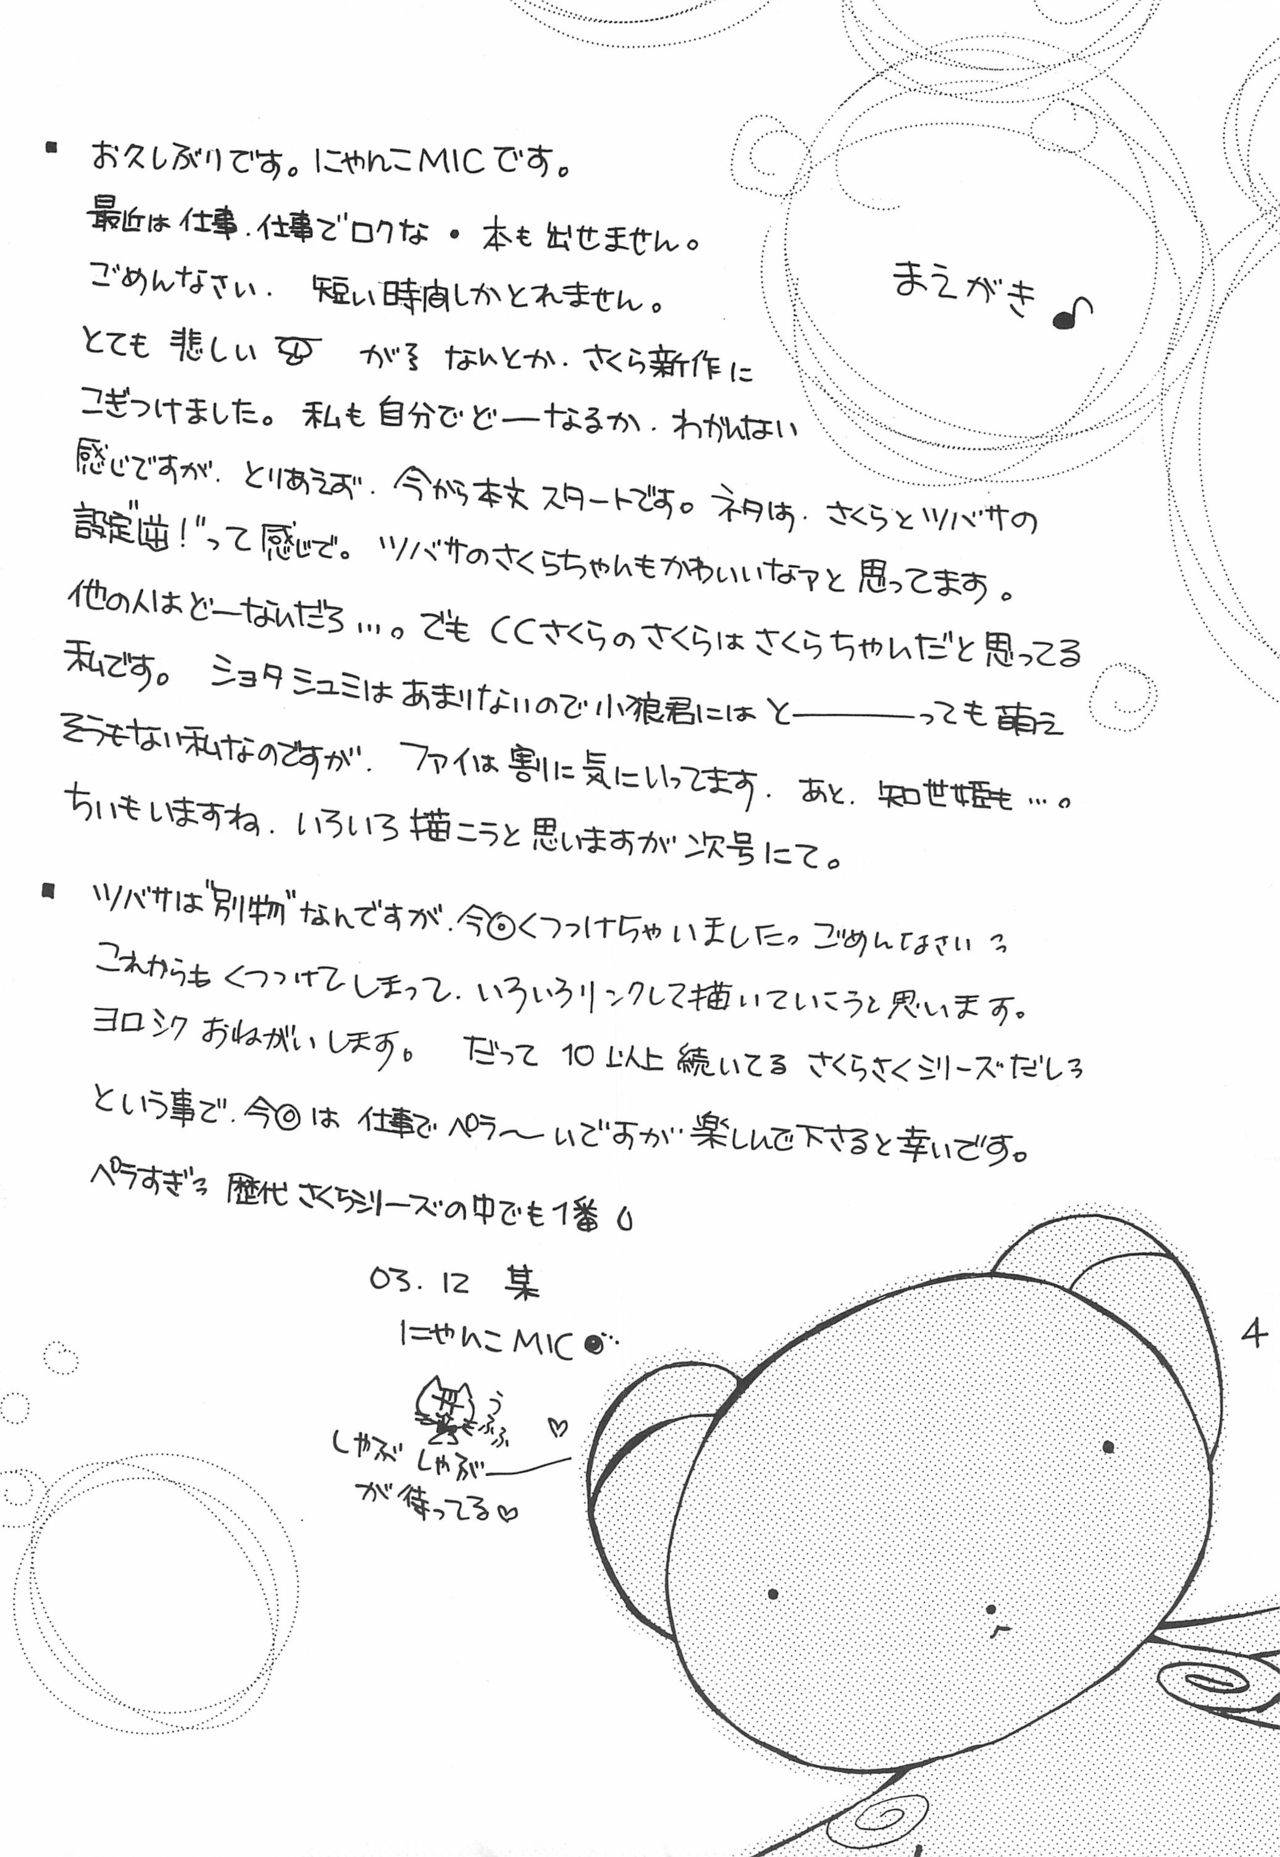 まえがき♪
■ お久しぶりです。にゃんこMICです。
最近は仕事、仕事でロクな・本も出せません。
ごめんなさい、短い時間しかとれません。
とても悲しい が なんとか、さくら新作に
こぎつけました。私も自分でどーなるか、わかんない
感じですが、とりあえず、今から本文スタートです。ネタは、さくらとツバサの
設定"逆!"って感じで。ツバサのさくらちゃんもかわいいなァと思ってます。
他の人はどーなんだろ…。でもCCさくらのさくらはさくらちゃんだと思ってる
私です。ショタシュミはあまりないので小狼君にはと――――っても萌え
そうもない私なのですが、ファイは割に気にいってます、あと、知世姫も…。
ちぃもいますね、いろいろ描こうと思いますが次号にて。
■ ツバサは"別物"なんですが、今回くっつけちゃいました。ごめんなさいっ
これからもくっつけてしまって、いろいろリンクして描いていこうと思います。
ヨロシクおねがいします。だって10以上続いてるさくらさくシリーズだしっ
という事で、今回は仕事でペラ〜いですが、楽しんで下さると幸いです。
ペラすぎっ歴代さくらシリーズの中でも1番
03.12 某
にゃんこMIC
うふふ
♡
しゃぶしゃぶ―
が待ってる♡
4